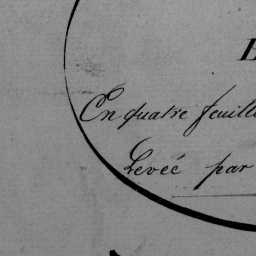 En quatre feuill
Levée par